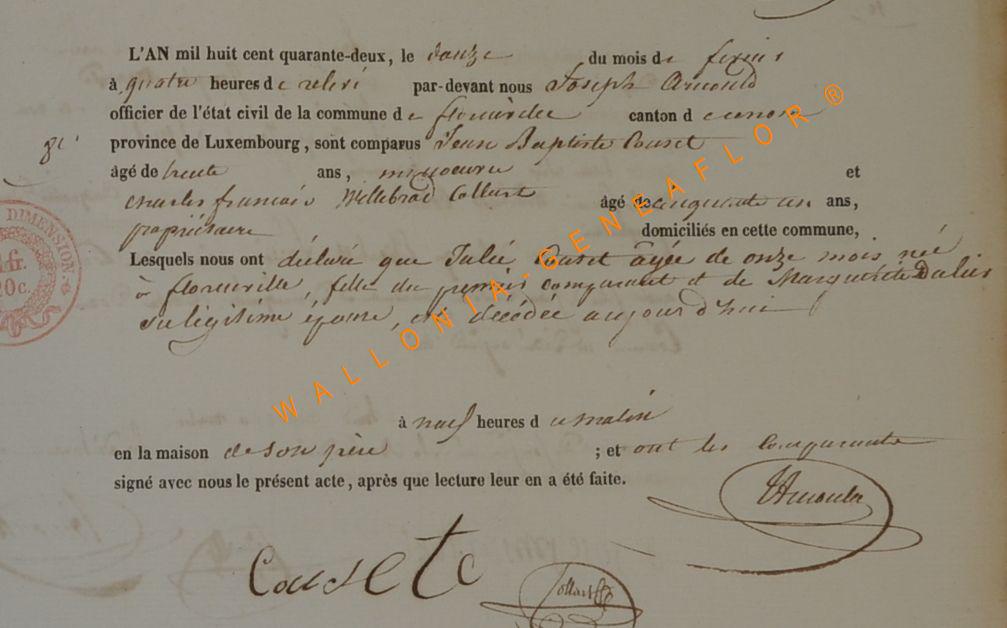 L'AN mil huit cent quarante-deux, le douze du mois de fevrier
à quatre heures de relevé par-devant nous Joseph Arnould
officier de l'état civil de la commune de florenville canton d
province de Luxembourg, sont comparus Jean Baptiste Causet
âgé de trente ans, manoeuvre et
charles françois Willebrod Collart âgé de cinquante un ans,
propriétaire domiciliés en cette commune,
Lesquels nous ont déclaré que Julie Causet âgée de onze mois née
à florenville, fille du premier comparant et de Marguerite
sa légitime épouse, est décédée aujourd'hui
à neuf heures du matin
en la maison de son père ; et ont les comparants
signé avec nous le présent acte, après que lecture leur en a été faite.
JArnould
Collart
DIMENSION
fr.
0c.
WALLONIA-GENEAFLOR®